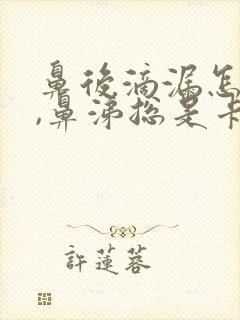 鼻後滴漏怎
,鼻涕總是卡
許蓮蓉